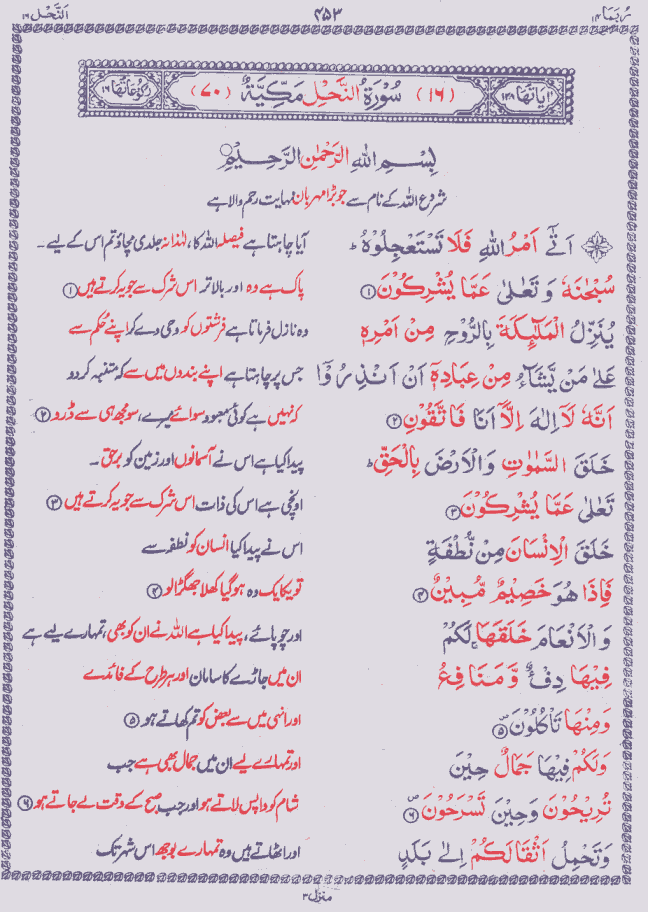 رُبَمَا ۱۴ ۴۵۳ اَلنَّحْل ۱۶
اٰيَاتُهَا ۱۲۸ (۱۶) سُوْرَةُ النَّحْلِ مَكِّيَّةٌ (۷۰) رُكُوْعَاتُهَا ۱۶
بِسْمِ اللهِ الرَّحْمٰنِ الرَّحِيْمِ
شروع اللہ کے نام سے جو بڑا مہربان نہایت رحم والا ہے
اَتٰٓى اَمْرُ اللهِ فَلَا تَسْتَعْجِلُوْهُ ؕ آیا چاہتا ہے فیصلہ اللہ کا، لہٰذا نہ جلدی مچاؤ تم اس کے لیے۔
سُبْحٰنَهٗ وَ تَعٰلٰى عَمَّا يُشْرِكُوْنَ ۱ پاک ہے وہ اور بالاتر اس شرک سے جو یہ کرتے ہیں ۱
يُنَزِّلُ الْمَلٰٓئِكَةَ بِالرُّوْحِ مِنْ اَمْرِهٖ وہ نازل فرماتا ہے فرشتوں کو وحی دے کر اپنے حُکم سے
عَلٰى مَنْ يَّشَآءُ مِنْ عِبَادِهٖٓ اَنْ اَنْذِرُوْٓا جس پر چاہتا ہے اپنے بندوں میں سے کہ متنبہ کر دو
اَنَّهٗ لَاۤ اِلٰهَ اِلَّاۤ اَنَا فَاتَّقُوْنِ ۲ کہ نہیں ہے کوئی معبود سوائے میرے، سو مجھ ہی سے ڈرو ۲
خَلَقَ السَّمٰوٰتِ وَالْاَرْضَ بِالْحَقِّ ؕ پیدا کیا ہے اس نے آسمانوں اور زمین کو برحق۔
تَعٰلٰى عَمَّا يُشْرِكُوْنَ ۳ اونچی ہے اس کی ذات اس شرک سے جو یہ کرتے ہیں ۳
خَلَقَ الْاِنْسَانَ مِنْ نُّطْفَةٍ اس نے پیدا کیا انسان کو نطفہ سے
فَاِذَا هُوَ خَصِيْمٌ مُّبِيْنٌ ۴ تو یکایک وہ ہو گیا کھلا جھگڑالو ۴
وَ الْاَنْعَامَ خَلَقَهَا ۚ لَكُمْ اور چوپائے، پیدا کیا ہے اللہ نے ان کو بھی، تمہارے لیے ہے
فِيْهَا دِفْءٌ وَّ مَنَافِعُ ان میں جاڑے کا سامان اور ہر طرح کے فائدے
وَمِنْهَا تَاْكُلُوْنَ ۵ اور انہی میں سے بعض کو تم کھاتے ہو ۵
وَلَكُمْ فِيْهَا جَمَالٌ حِيْنَ اور تمہارے لیے ان میں جمال بھی ہے جب
تُرِيْحُوْنَ وَحِيْنَ تَسْرَحُوْنَ ۶ شام کو واپس لاتے ہو اور جب صبح کے وقت لے جاتے ہو ۶
وَتَحْمِلُ اَثْقَالَكُمْ اِلٰى بَلَدٍ اور اٹھاتے ہیں وہ تمہارے بوجھ اس شہر تک
منزل ۳